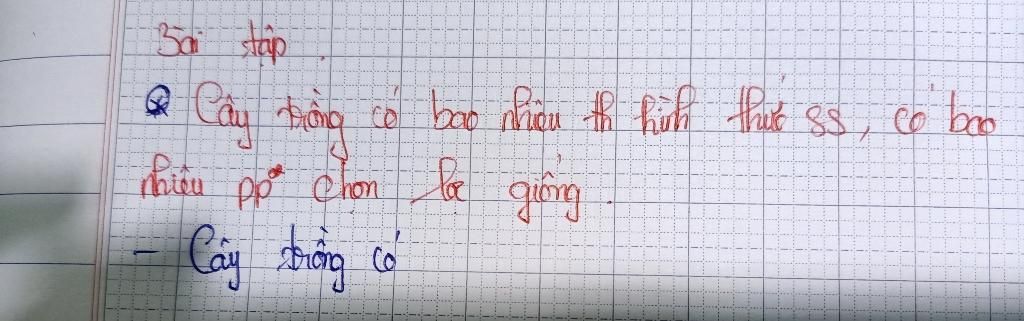 Bài tập.
Cây trồng có bao nhiêu th hình thức SS, có bao
nhiêu pp chọn lọc giống.
- Cây trồng có